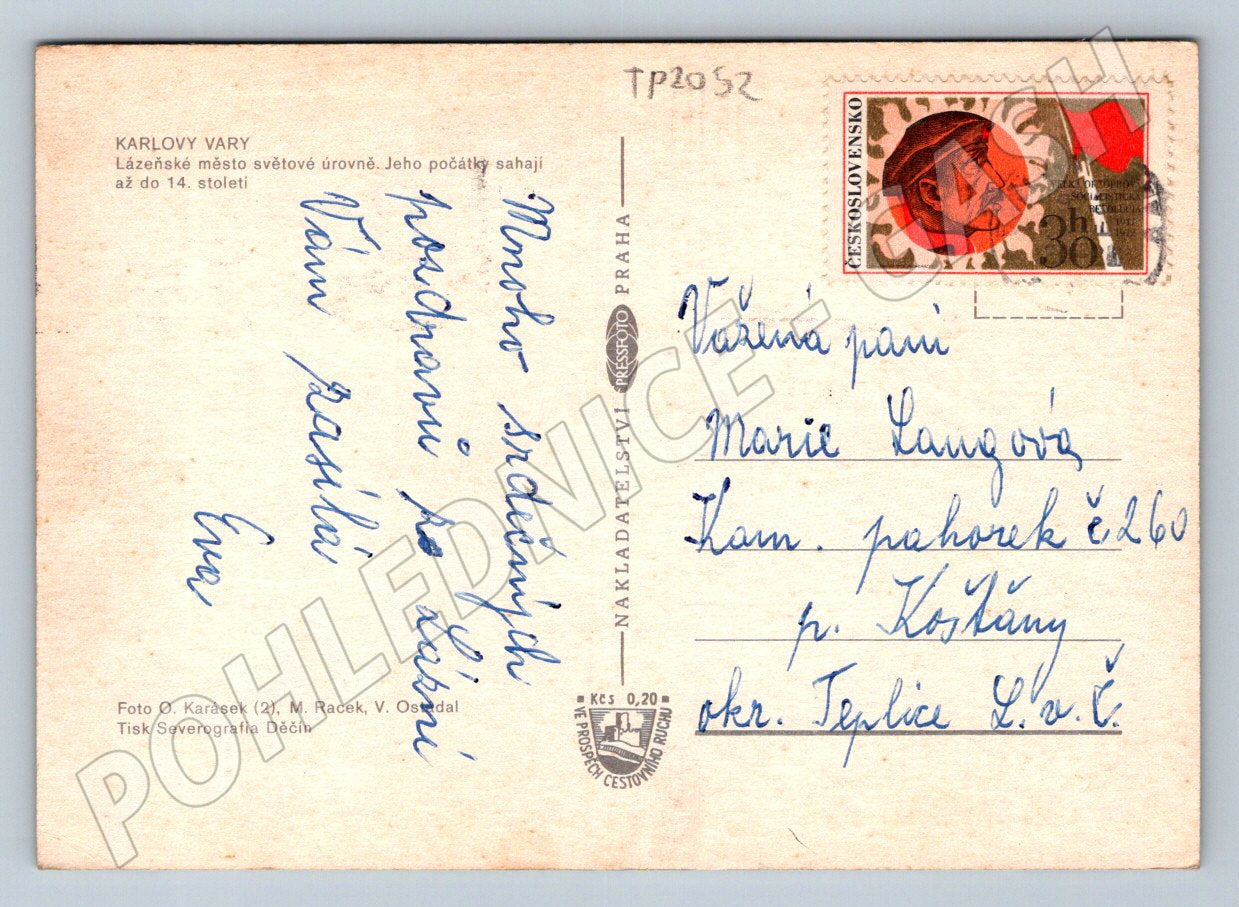 TP2052
KARLOVY VARY
Lázeňské město světové úrovně. Jeho počátky sahají
až do 14. století
Mnoho srdečných
pozdravů z Lázní
Vám zasílá
Eva
Foto O. Karásek (2), M. Racek, V. Ostádal
Tisk Severografia Děčín
NAKLADATELSTVÍ PRESSFOTO PRAHA
Kčs 0,20
VE PROSPĚCH CESTOVNÍHO RUCHU
ČESKOSLOVENSKO
VELKÁ ŘÍJNOVÁ
SOCIALISTICKÁ
REVOLUCE
30h
Vážená paní
Marie Langová
Kam. pahorek č 260
p. Košťany
okr. Teplice L. v. Č.
POHLEDNICE - CASH